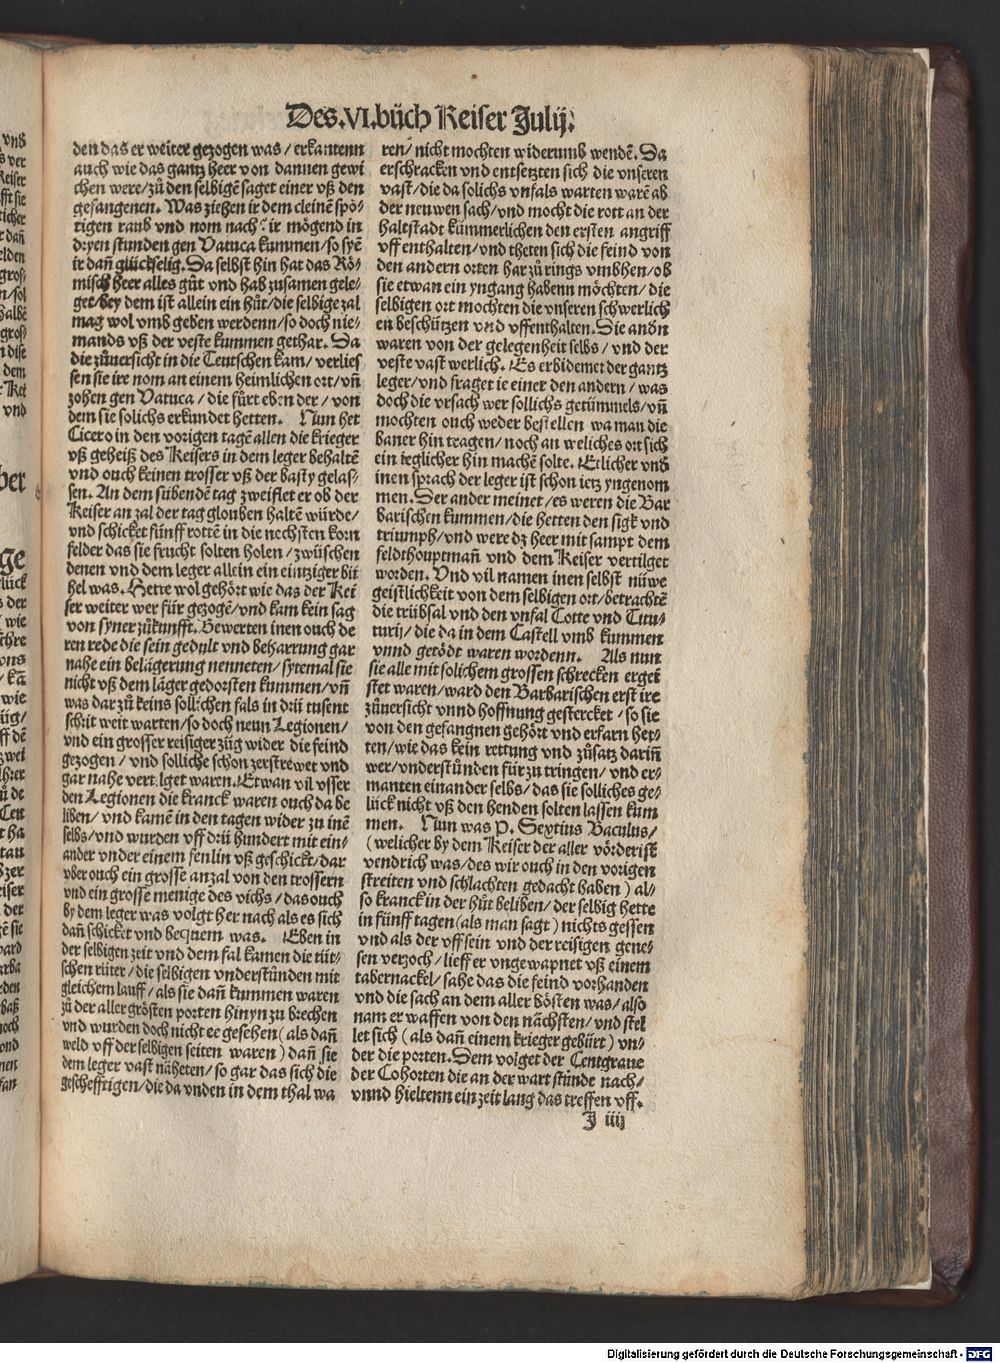 Des.VI.bůch Keiser Julij.
den das er weiter gezogen was / erkantenn
auch wie das gantz heer von dannen gewi
chen were/zů den selbigē saget einer vß den
gefangenen. Was ziehen ir dem cleinē spö⸗
tigen raub vnd nom nach? ir mögend in
dryen stunden gen Vatuca kummen/so syē
ir dañ glückselig. Da selbst hin hat das Rö⸗
misch heer alles gůt vnd hab zusamen gele⸗
get/bey dem ist allein ein hůt/die selbige zal
mag wol vmb geben werdenn/so doch nie⸗
mands vß der veste kummen gethar. Da
die zůuersicht in die Teutschen kam/verlies
sen sie ire nom an einem heimlichen ort/vñ
zohen gen Vatuca/die fůrt eben der/von
dem sie solichs erkundet hetten. Nun het
Cicero in den vorigen tagē allen die krieger
vß geheiß des Keisers in dem leger behaltē
vnd ouch keinen trosser vß der basty gelas⸗
sen. An dem sübendē tag zweiflet er ob der
Keiser an zal der tag glouben haltē würde/
vnd schicket fünff rottē in die nechsten korn
felder das sie frucht solten holen/zwüschen
denen vnd dem leger allein ein eintziger bü
hel was. Hette wol gehört wie das der Kei
ser weiter wer für gezogē/vnd kam kein sag
von syner zůkunfft. Bewerten inen ouch de
ren rede die sein gedult vnd beharrung gar
nahe ein belägerung nenneten/sytemal sie
nicht vß dem läger gedorsten kummen/vñ
was dar zů keins sollichen fals in drü tusent
schrit weit warten/so doch neun Legionen/
vnd ein grosser reisiger züg wider die feind
gezogen/vnd solliche schon zerstrewet vnd
gar nahe vertilget waren. Etwan vil vsser
den Legionen die kranck waren ouch da be
liben/vnd kamē in den tagen wider zu inē
selbs/vnd wurden vff drü hundert mit ein⸗
ander vnder einem fenlin vß geschickt/dar
vber ouch ein grosse anzal von den trossern
vnd ein grosse menige des vichs/das ouch
by dem leger was volgt her nach als es sich
dañ schicket vnd bequem was. Eben in
der selbigen zeit vnd dem fal kamen die tüt⸗
schen rüter/die selbigen vnderstůnden mit
gleichem lauff/als sie dañ kummen waren
zů der aller grösten porten hinyn zu brechen
vnd wurden doch nicht ee gesehen(als dañ
weld vff der selbigen seiten waren)dañ sie
dem leger vast näheten/so gar das sich die
gescheffrigen/die da vnden in dem thal wa
ren/nicht mochten widerumb wendē. Da
erschracken vnd entsetzten sich die vnseren
vast/die da solichs vnfals warten warē ab
der neuwen sach/vnd mocht die rott an der
haltstadt kümmerlichen den ersten angriff
vff enthalten/vnd theten sich die feind von
den andern orten har zů rings vmbhen/ob
sie etwan ein yngang habenn möchten/die
selbigen ort mochten die vnseren schwerlich
en beschützen vnd vffenthalten. Die andn
waren von der gelegenheit selbs/vnd der
veste vast werlich. Es erbidemet der gantz
leger/vnd fraget ie einer den andern/was
doch die vrsach wer sollichs getümmels/vñ
mochten ouch weder bestellen wa man die
baner hin tragen/noch an weliches ort sich
ein ieglicher hin machē solte. Etlicher vnd
inen sprach der leger ist schon ietz yngenom
men. Der ander meinet/es weren die Bar
barischen kummen/die hetten den sigk vnd
triumph/vnd were dz heer mit sampt dem
feldthouptmañ vnd dem Keiser vertilget
worden. Vnd vil namen inen selbst nüwe
geistlichkeit von dem selbigen ort/betrachtē
die trübsal vnd den vnfal Cotte vnd Titu⸗
turij/die da in dem Castell vmb kummen
vnnd getödt waren wordenn. Als nun
sie alle mit solichem grossen schrecken ergei
stet waren/ward den Barbarischen erst ire
zůuersicht vnnd hoffnung gestercket/so sie
von den gefangnen gehört vnd erfarn het⸗
ten/wie das kein rettung vnd zůsatz dariñ
wer/vnderstůnden für zu tringen/vnd er⸗
manten einander selbs/das sie solliches ge⸗
lück nicht vß den henden solten lassen kum
men. Nun was P. Sextius Baculus/
(welicher by dem Keiser der aller vörderist
vendrich was/des wir ouch in den vorigen
streiten vnd schlachten gedacht haben) al⸗
so kranck in der hůt beliben/der selbig hette
in fünff tagen(als man sagt)nichts gessen
vnd als der vff sein vnd der reisigen gene⸗
sen verzoch/lieff er vngewapnet vß einem
tabernackel/sahe das die feind vorhanden
vnd die sach an dem aller bösten was/also
nam er waffen von den nächsten/vnd stel
let sich(als dañ einem krieger gebürt)vn⸗
der die porten. Dem volget der Centgraue
der Cohorten die an der wart stůnde nach/
vnnd hieltenn ein zeit lang das treffen vff.
J iiij
Digitalisierung gefördert durch die Deutsche Forschungsgemeinschaft - DFG